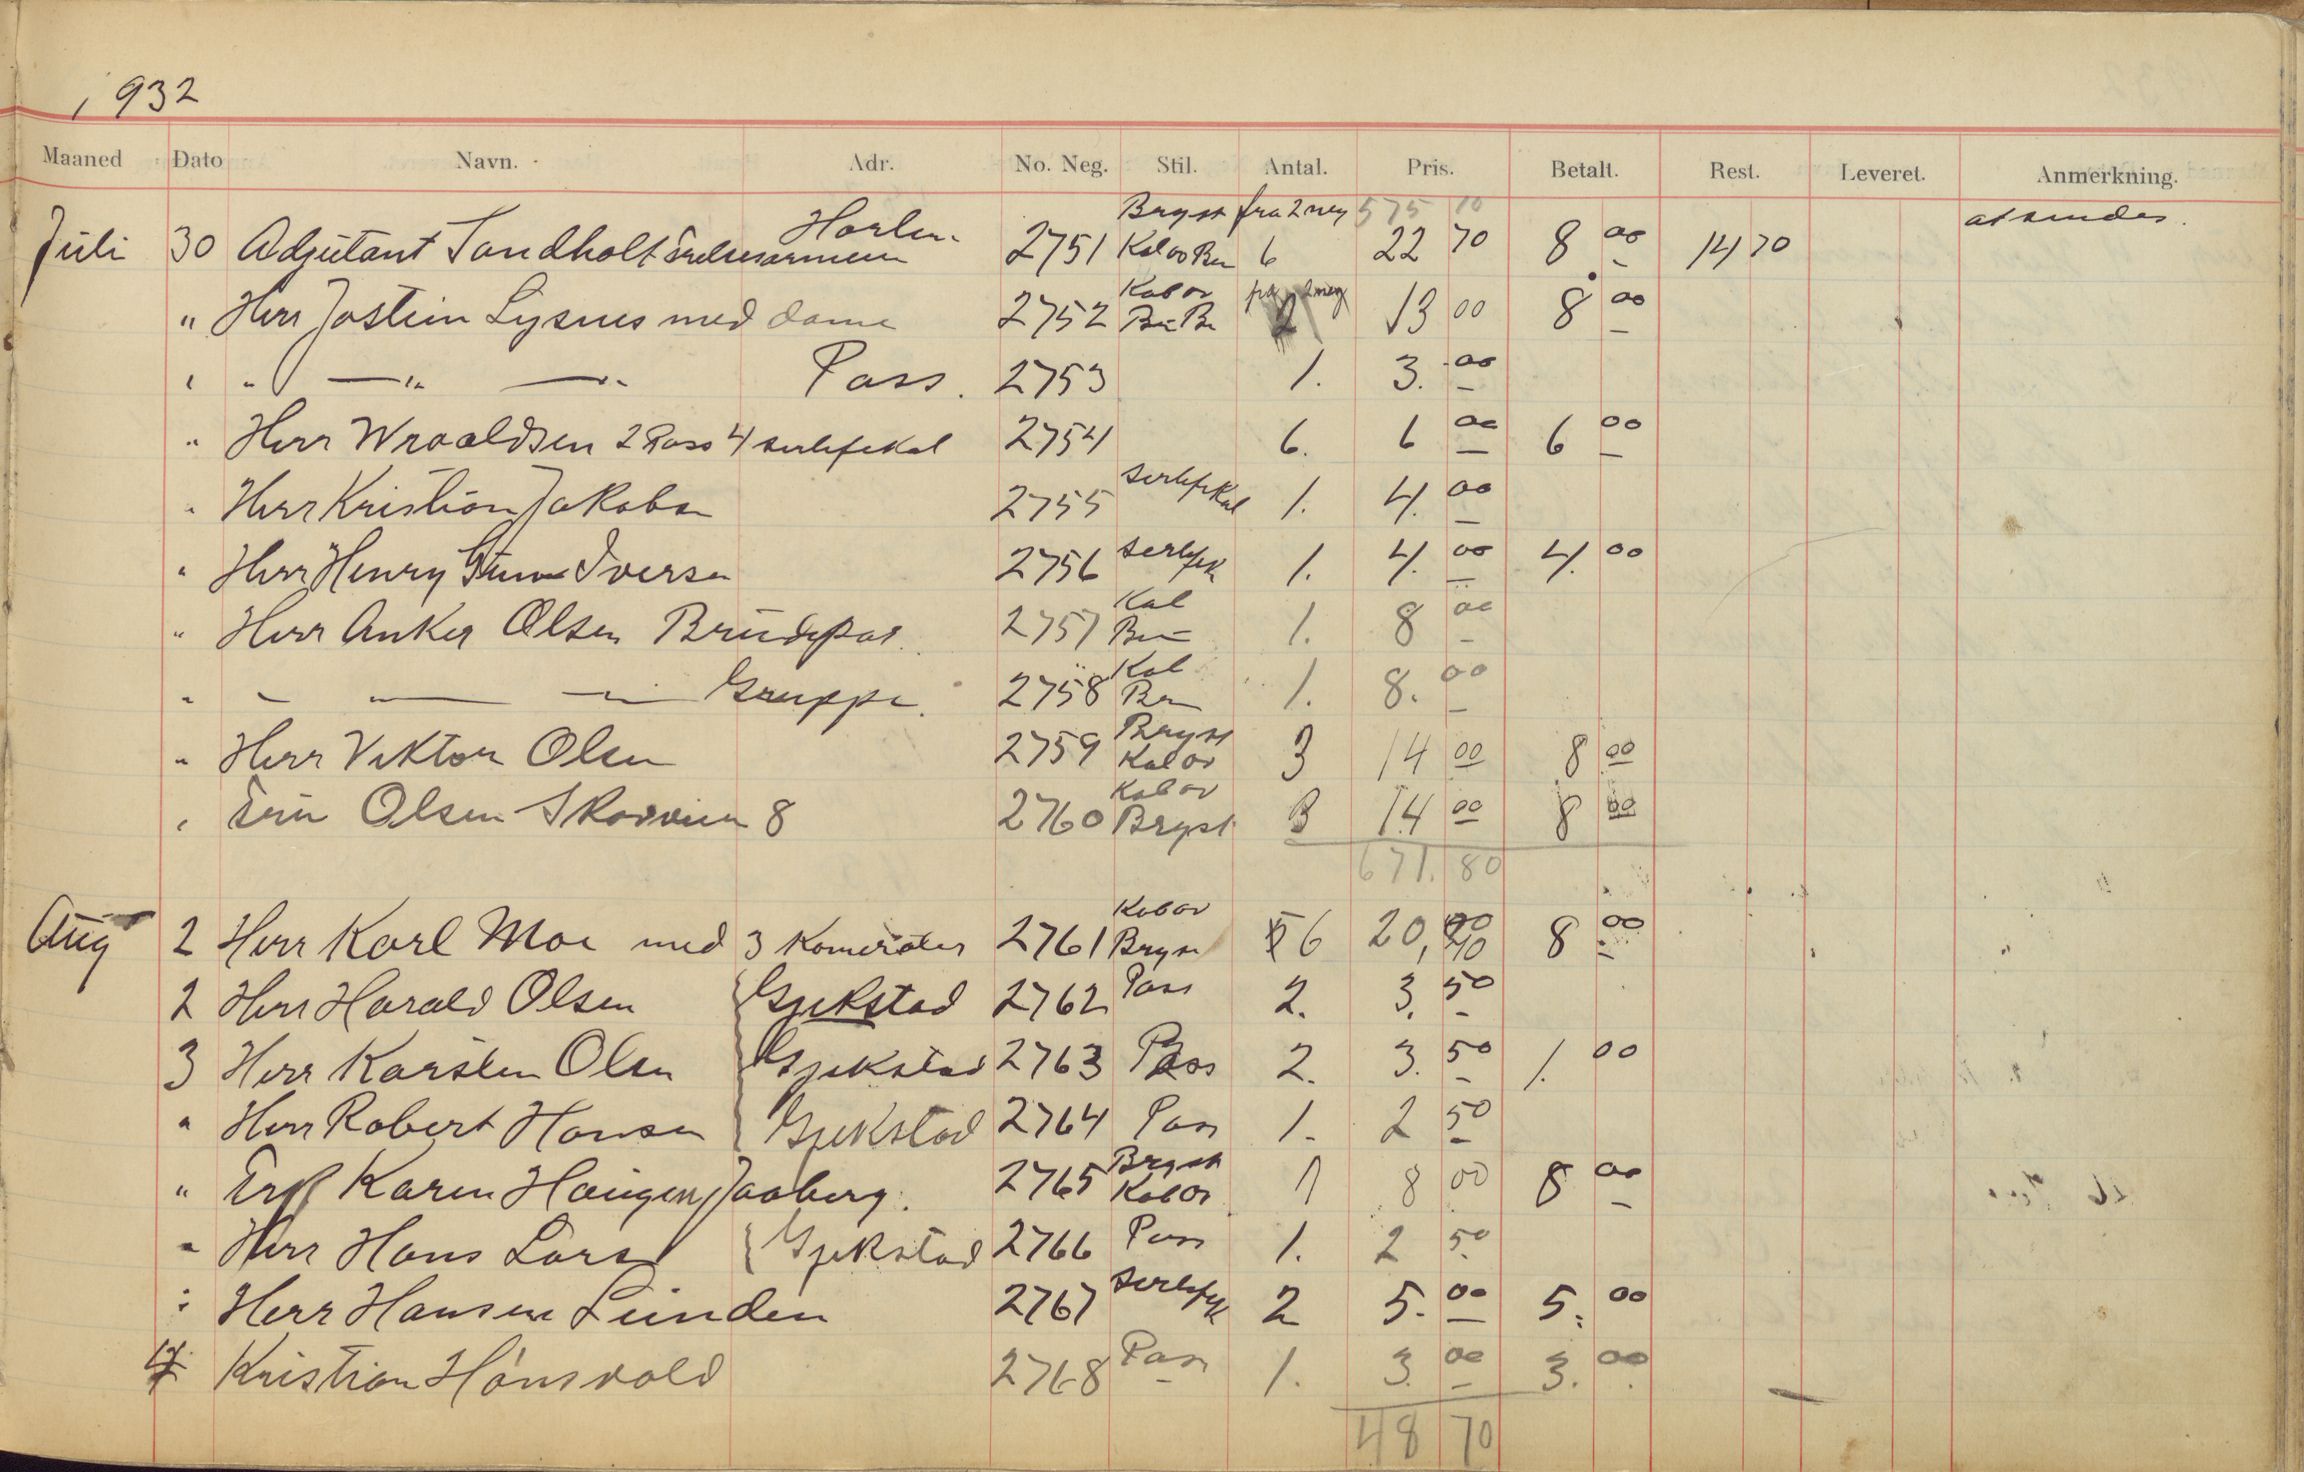 1932
Maaned Dato Navn. Adr. No. Neg. Stil. Antal. Pris. Betalt. Rest. Leveret. Anmerkning.
Bryst fra 2 neg 575 10 atsendes.
Juli 30 Adjutant Sandholt 2751 6 22 70 8 00 14 70
Kabor fra 2 neg
" Herr Jostein Lysnes med dame 2752 2 13 00 8 00
" " — " — " Pass. 2753 1. 3. 00
" Herr Wraaldsen 2 Pass 4 serlefekal 2754 6. 6 00 6 00
" Herr Kristian Jakobsen 2755 serlefekal 1. 4. 00
" Herr Henry Iversen 2756 serlefek 1. 4. 00 4. 00
Kab
" Herr Anker Olsen Brüdepar. 2757 1. 8 00
Kab
" — — Gruppe. 2758 1. 8. 00
Bryst
" Herr Viktor Olsen 2759 Kabor 3 14 00 8 00
Kabor
" Olsen 8 2760 Bryst 3 14 00 8 00
671. 80
Kabor
Aug 2 Herr Karl Moe med 3 Kamerater 2761 Bryst 6 20, 70 8 00
2 Herr Harald Olsen Gjekstad 2762 Pass 2. 3. 50
3 Herr Karsten Olsen Gjekstad 2763 Pass 2. 3. 50 1. 00
" Herr Robert Hansen Gjekstad 2764 Pass 1. 2 50
Bryst
" Frk Karen Haugen, Jaaberg. 2765 Kabor 1 8 00 8 00
" Herr Hans Lars Gjekstad 2766 Pass 1. 2 50
" Herr Hansen Lünden 2767 serlefek 2 5. 00 5. 00
4 Kristian Hönsvald 2768 Pass 1. 3. 00 3. 00
48 70